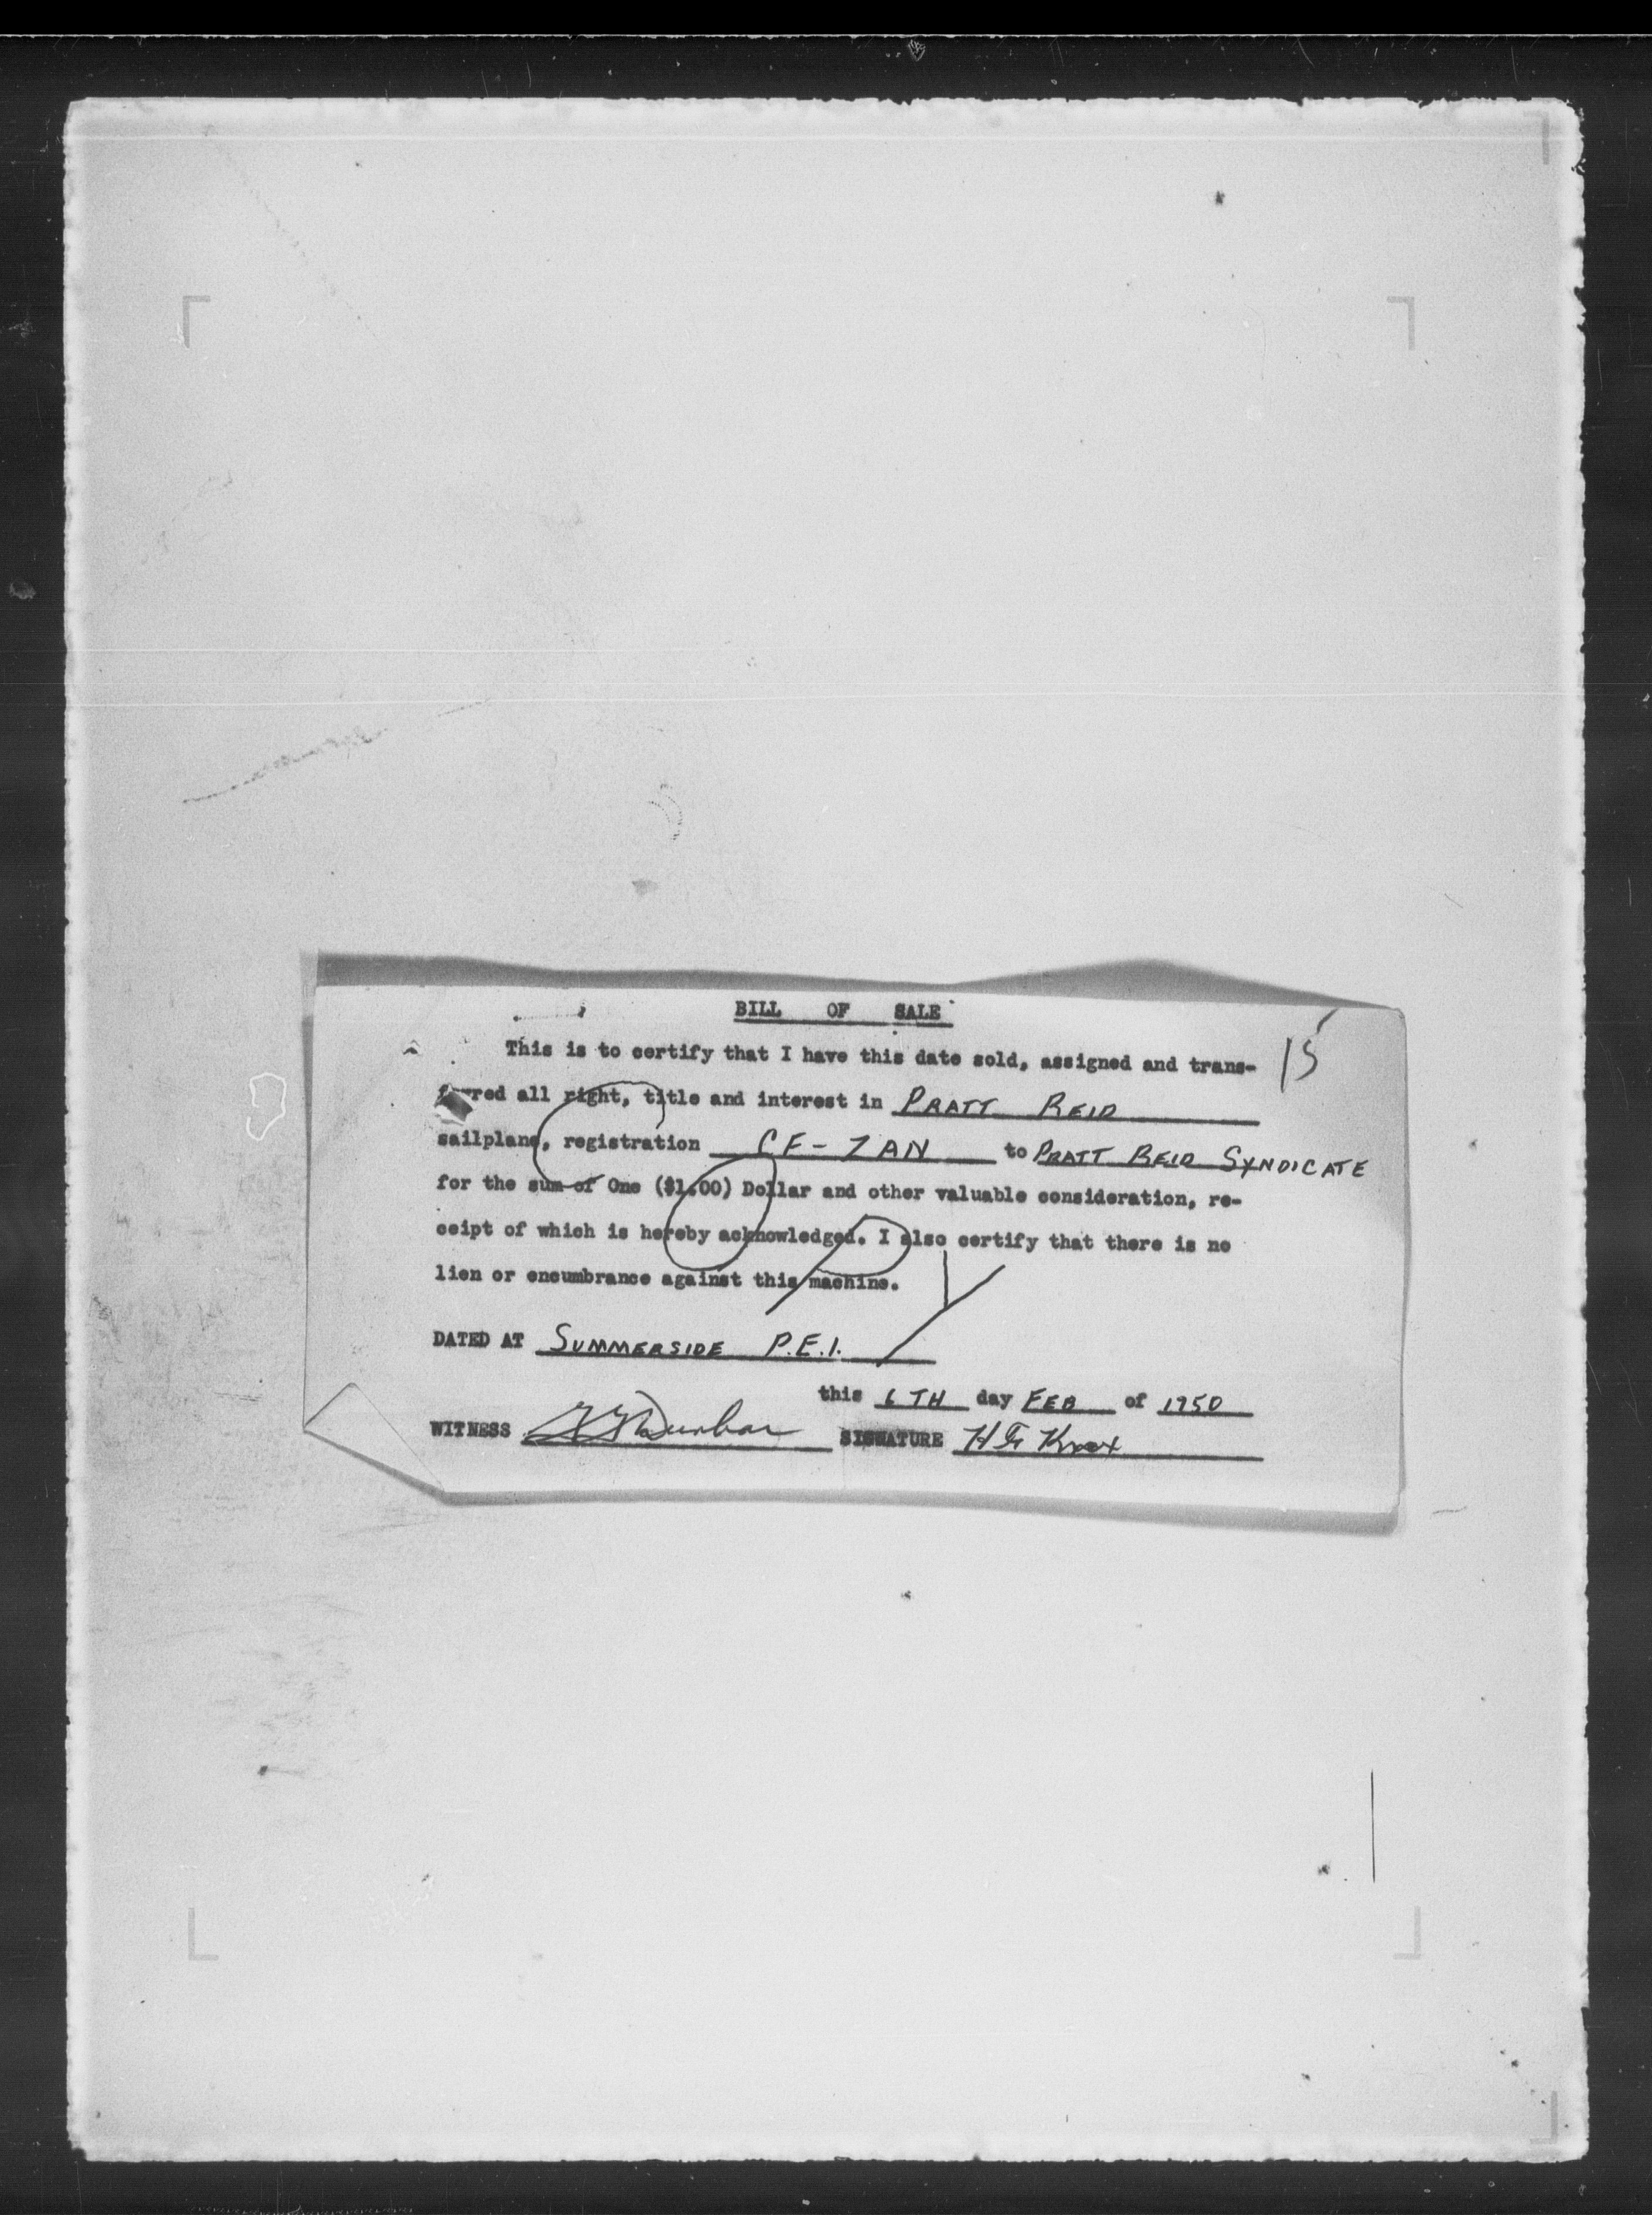 BILL OF SALE
15
This is to certify that I have this date sold, assigned and trans-
ferred all right, title and interest in PRATT REID
sailplane, registration CF-ZAN to PRATT REID SYNDICATE
for the sum of One ($1.00) Dollar and other valuable consideration, re-
ceipt of which is hereby acknowledged. I also certify that there is no
lien or encumbrance against this machine.
DATED AT SUMMERSIDE P.E.I.
this 6TH day FEB of 1950
WITNESS Dunbar SIGNATURE H G Knox